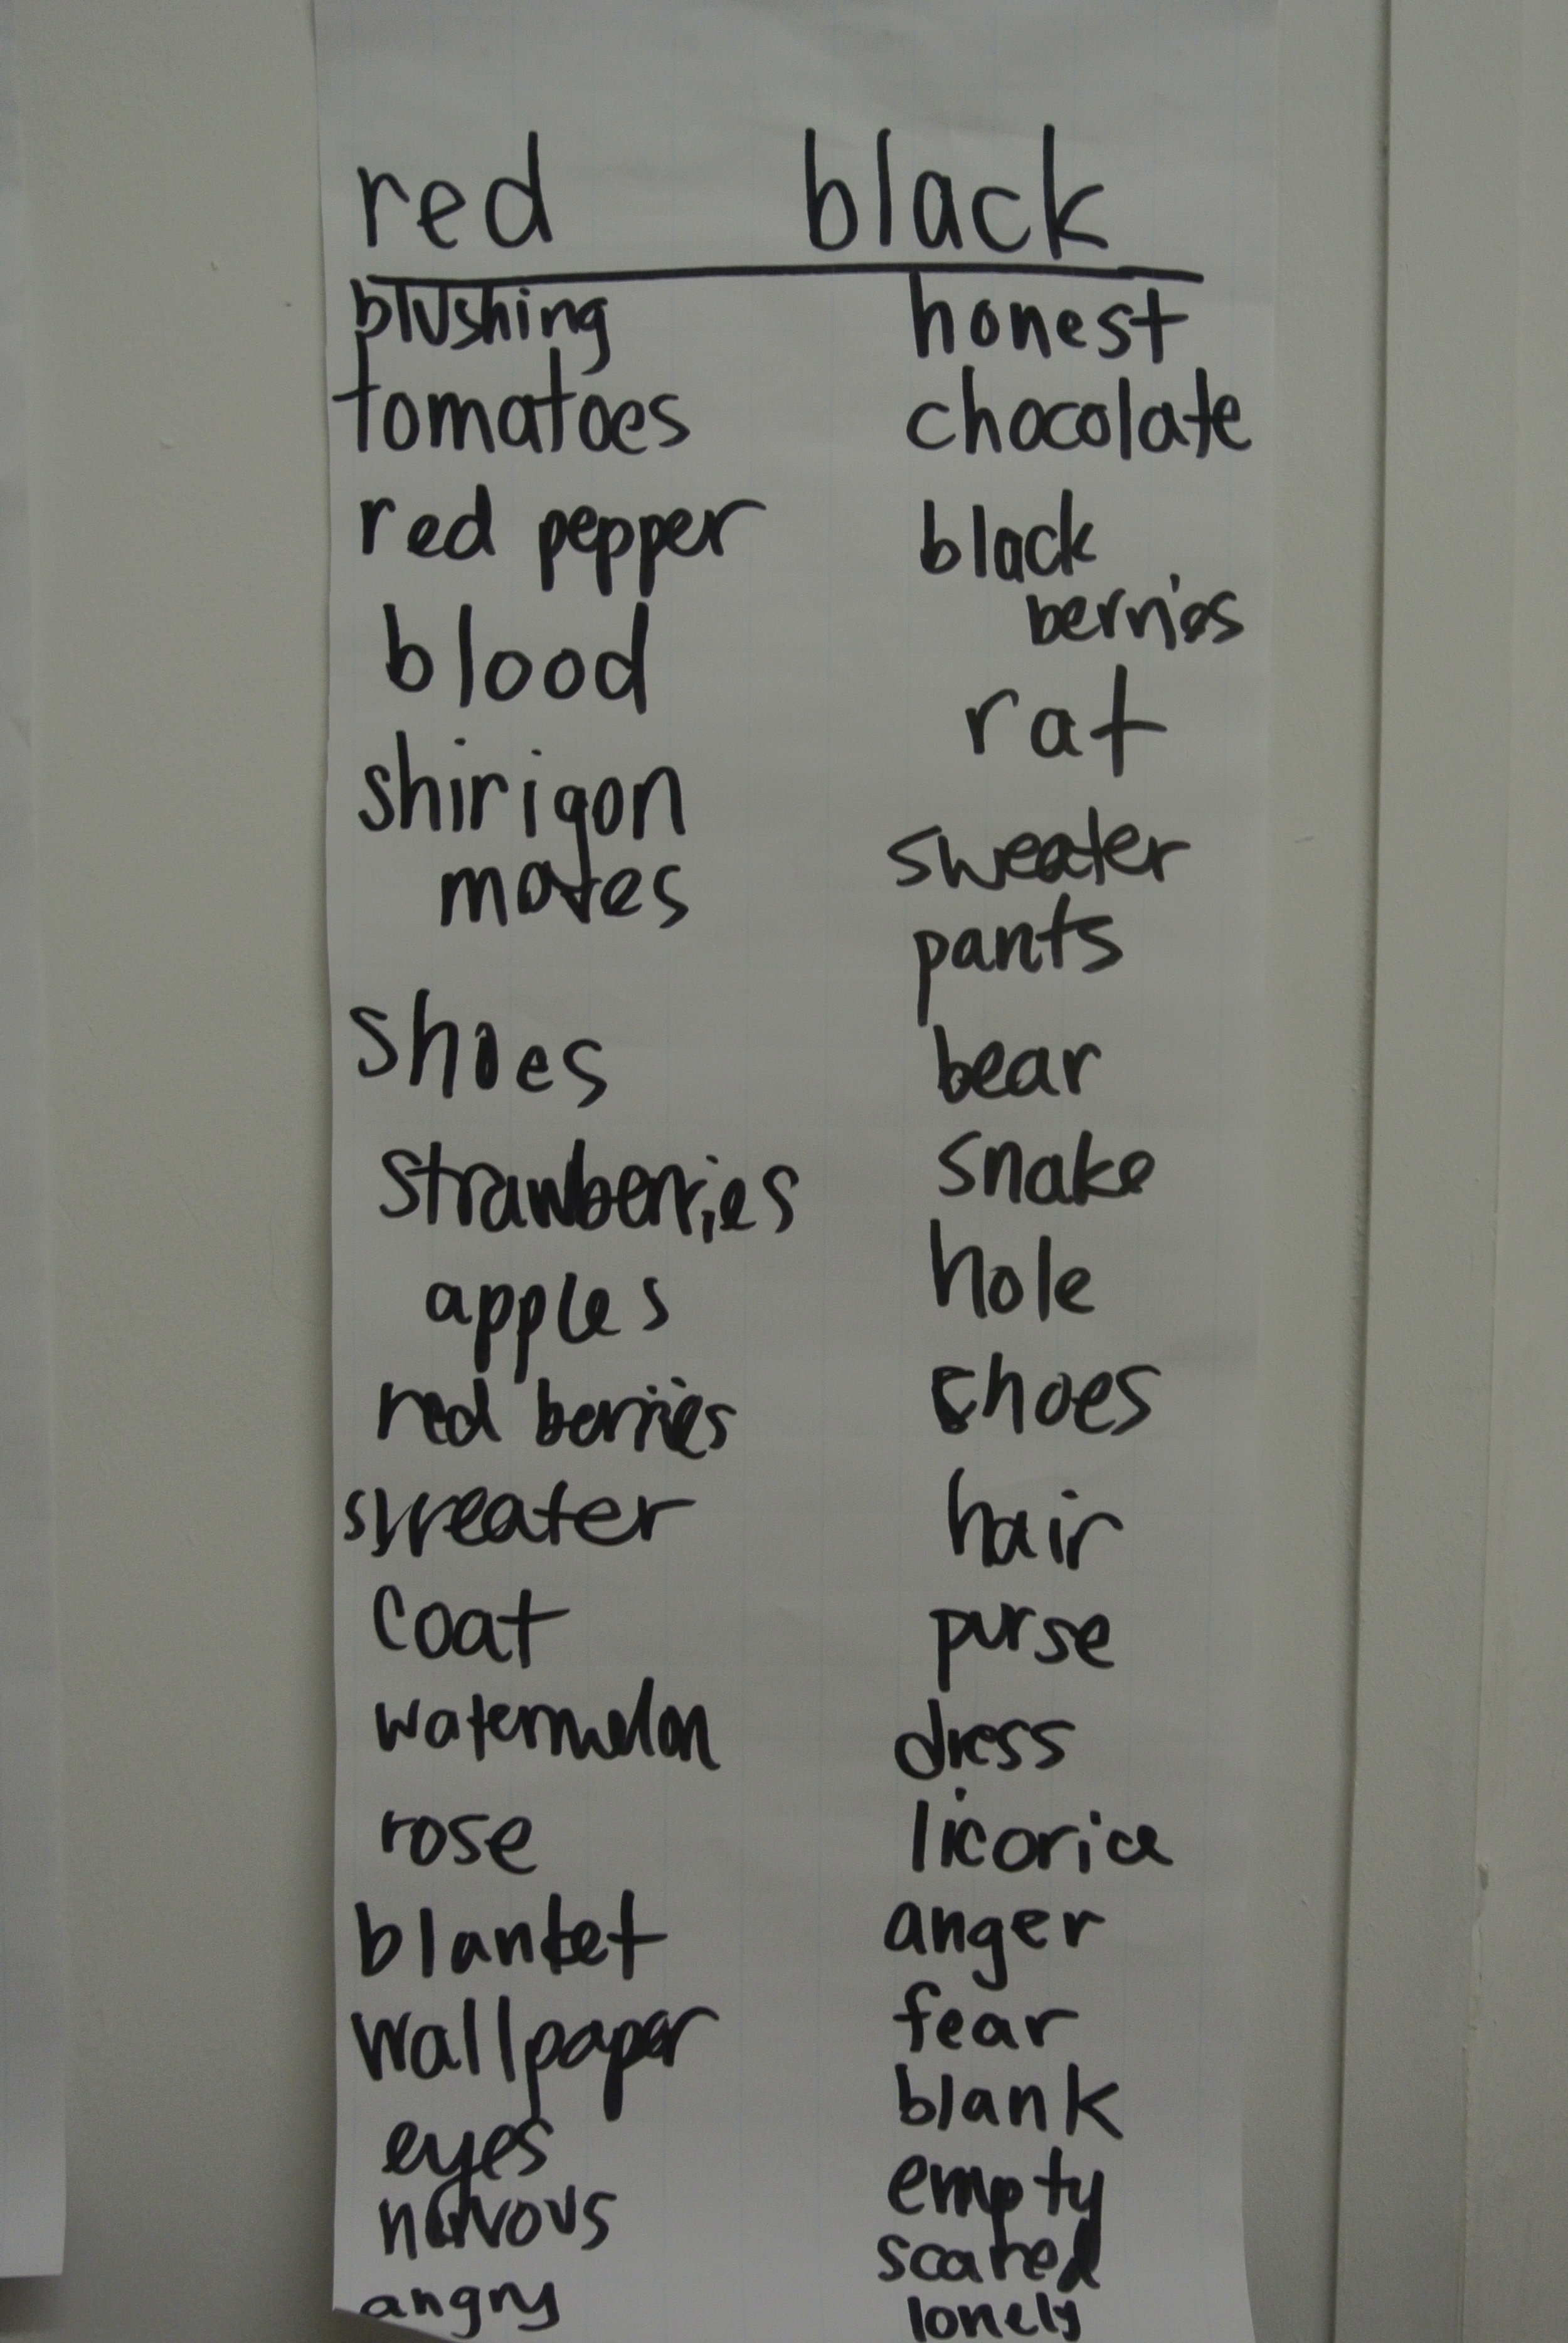 red black
blushing honest
tomatoes chocolate
red pepper black
berries
blood rat
shirigon sweater
mates pants
shoes bear
strawberries snake
apples hole
red berries shoes
sweater hair
coat purse
watermelon dress
rose licorice
blanket anger
wallpaper fear
eyes blank
nervous empty
angry scared
lonely